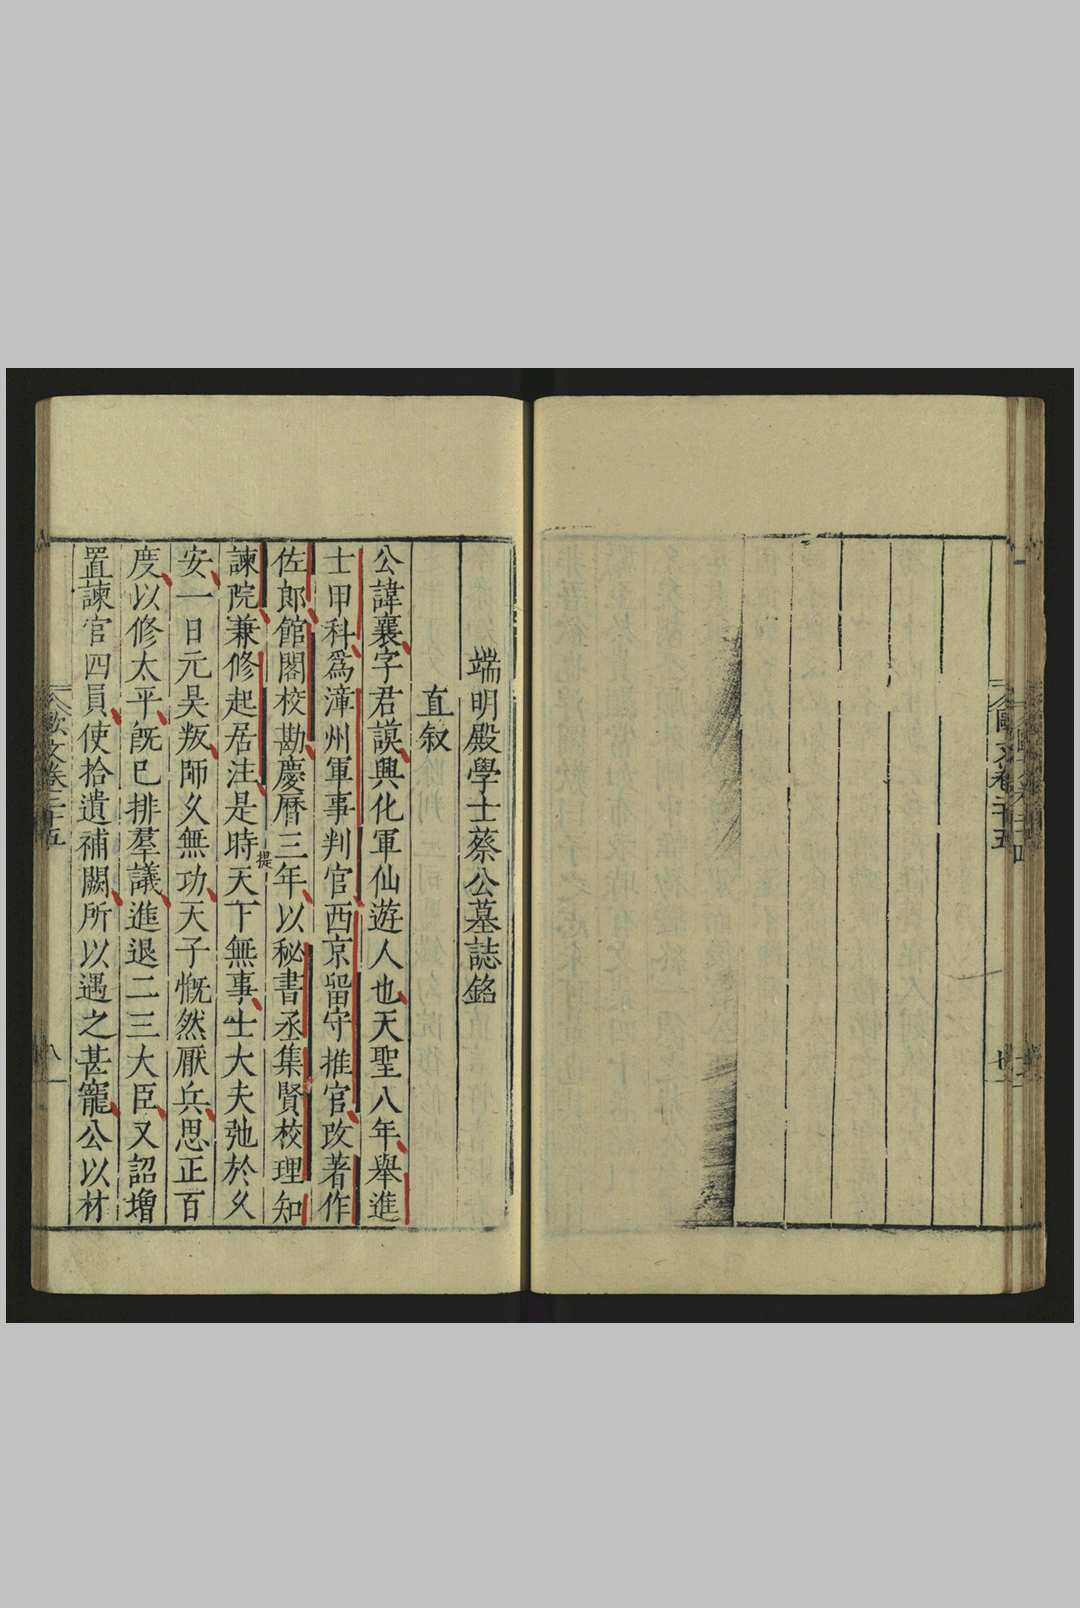 端明殿學士蔡公墓誌銘
直叙
公諱襄字君謨興化軍仙遊人也天聖八年舉進
士甲科爲漳州軍事判官西京留守推官改著作
佐郎館閣校勘慶曆三年以秘書丞集賢校理知
諫院兼修起居注是時天下無事士大夫弛於久
提
安一日元昊叛師久無功天子慨然厭兵思正百
度以修太平既已排羣議進退二三大臣又詔增
置諫官四員使拾遺補闕所以遇之甚寵公以材
歐文卷二十五
八一